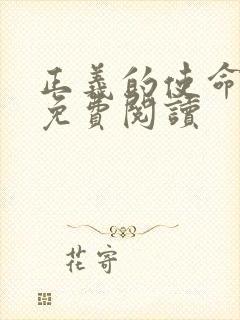 正義的使命
免費閱讀
花寄